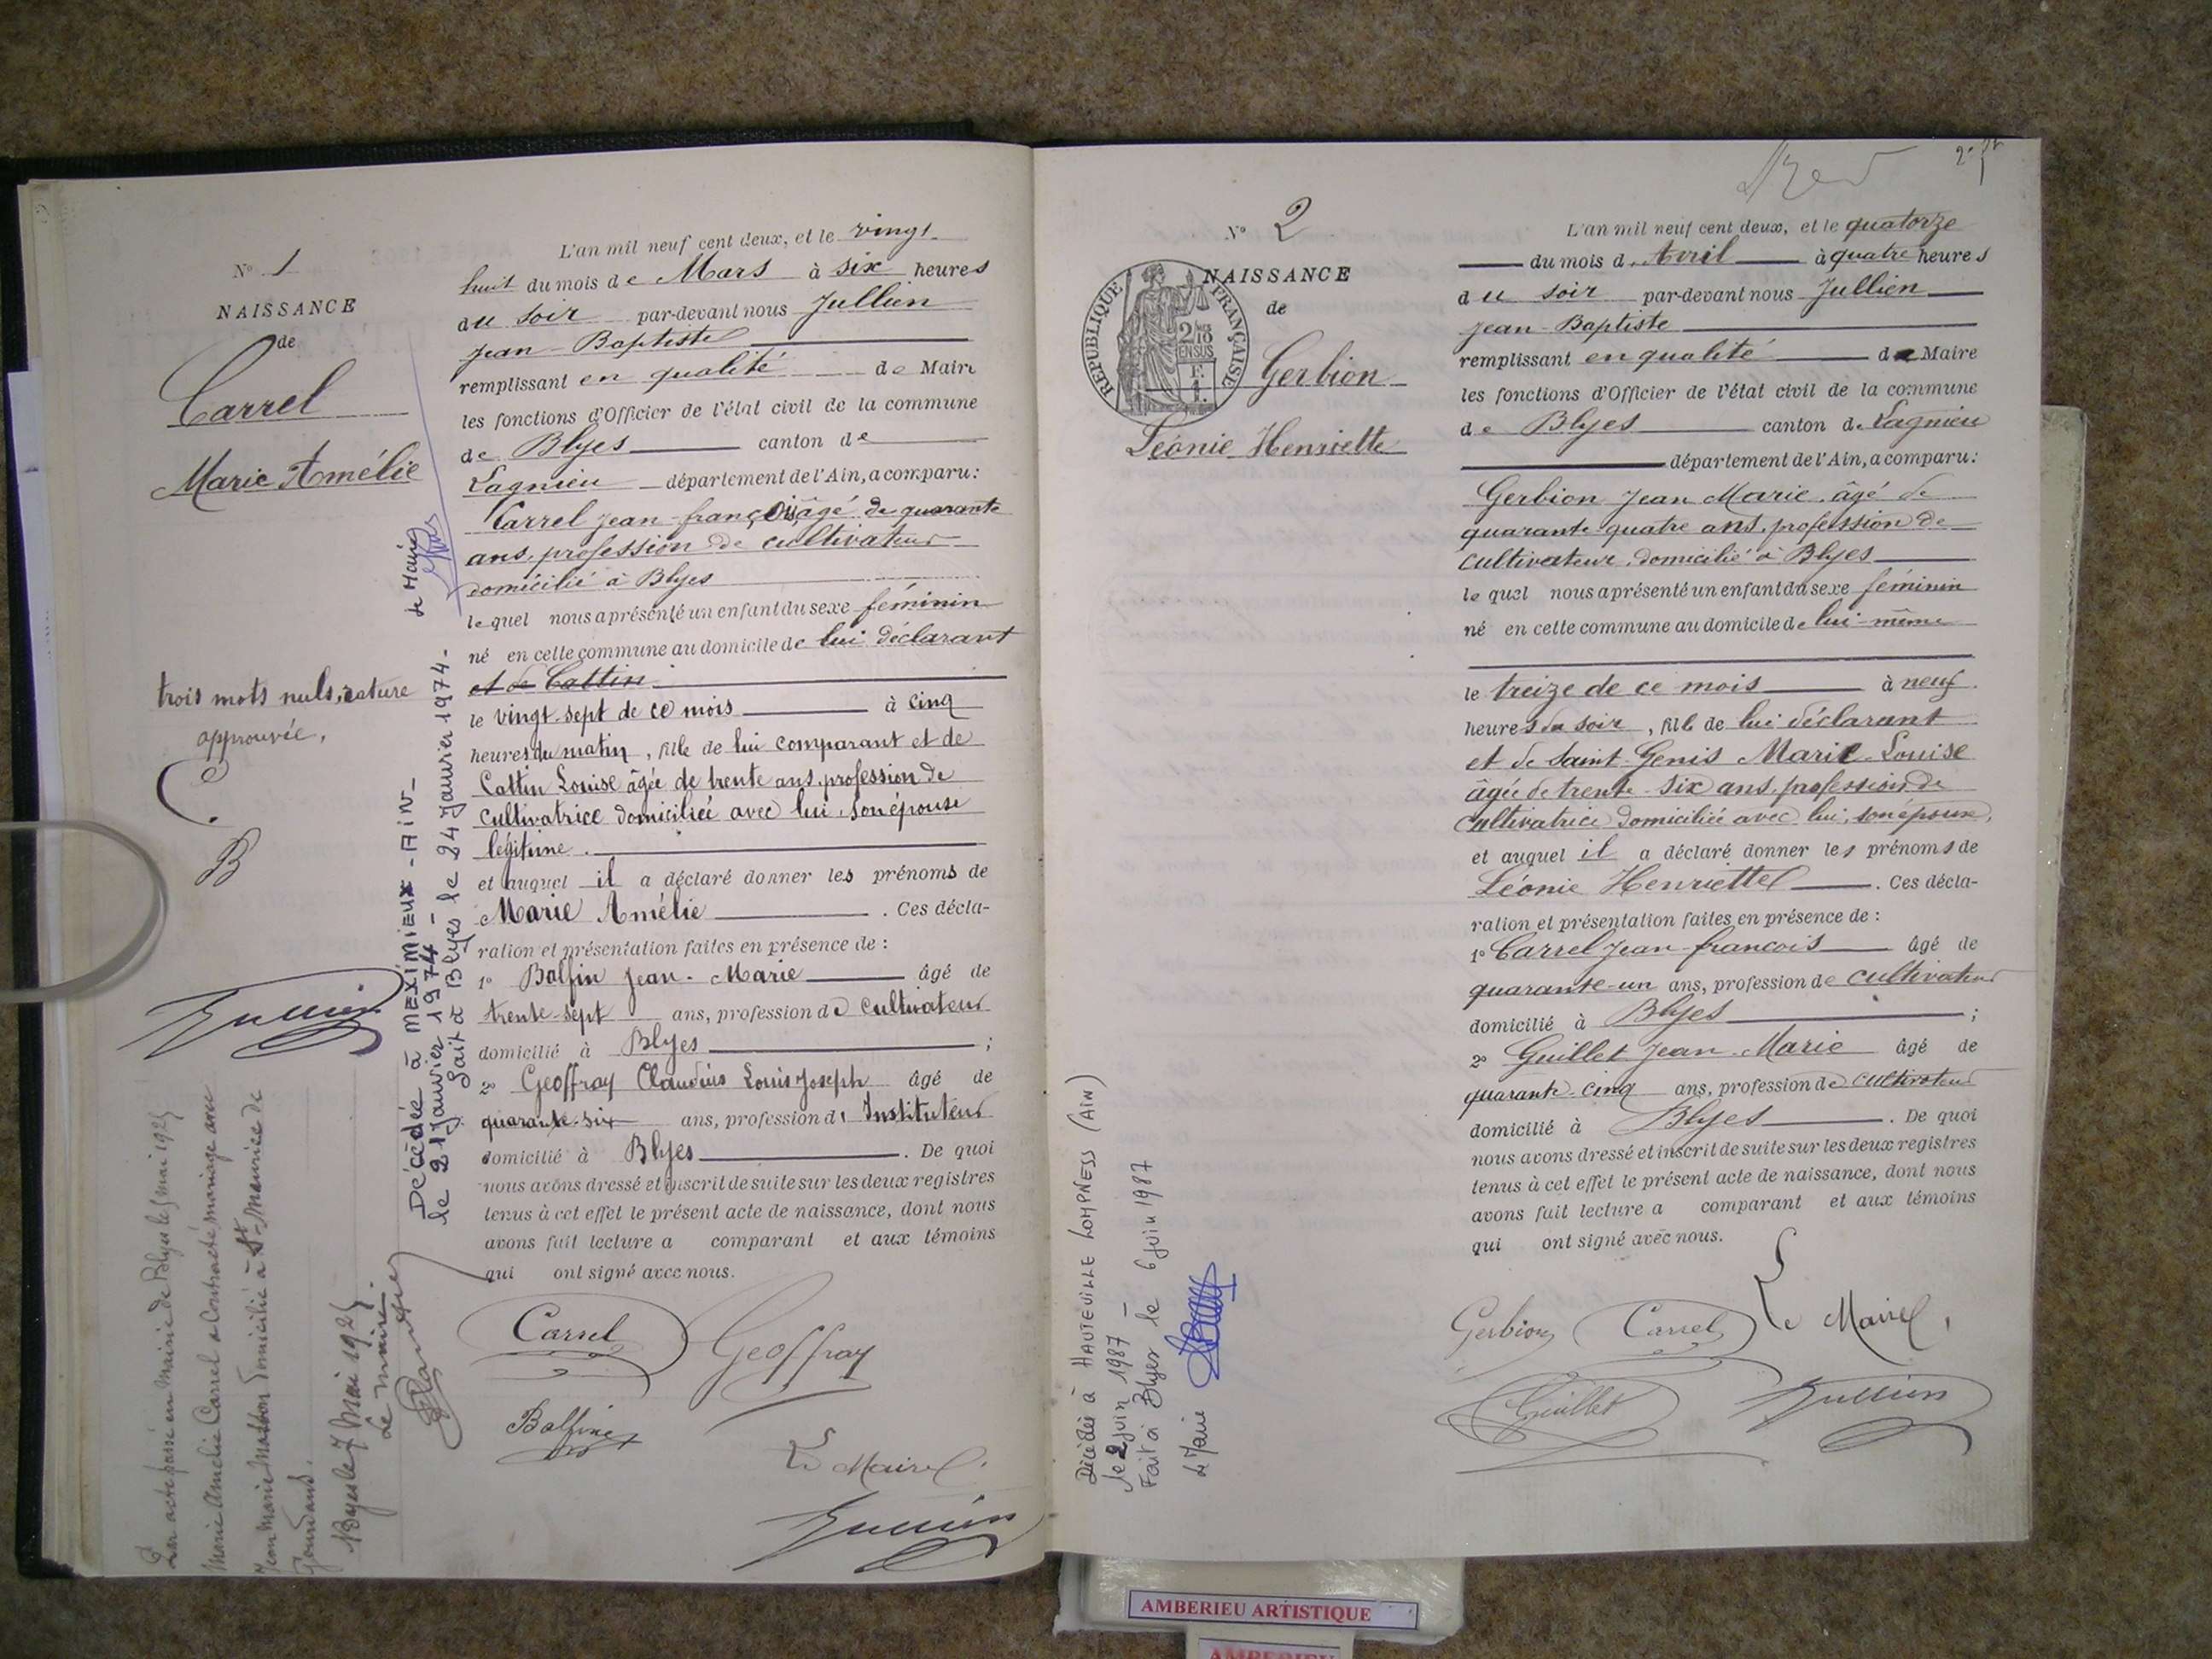 N° 1
NAISSANCE
de
Carrel
Marie Amélie
trois mots nuls, rature
approuvée.
C.
B
Jullien
Par acte passé en Mairie de Blyes le mai 192
Marie Amélie Carrel a contracté mariage avec
Jean Marie domicilié à St Maurice de
Gourdans.
Blyes le 7 Mai 192
Le maire.
Décédée à MEXIMIEUX - AIN -
le 21 Janvier 1974 -
Fait à Blyes le 24 Janvier 1974 -
le Maire
L'an mil neuf cent deux, et le vingt
huit du mois de Mars à six heures
du soir par-devant nous Jullien
Jean-Baptiste
remplissant en qualité de Maire
les fonctions d'Officier de l'état civil de la commune
de Blyes canton de
Lagnieu département de l'Ain, a comparu :
Carrel Jean-françois, âgé de quarante
ans, profession de cultivateur
domicilié à Blyes
lequel nous a présenté un enfant du sexe féminin
né en cette commune au domicile de lui déclarant
et de Cattin
le vingt-sept de ce mois à cinq
heures du matin, fille de lui comparant et de
Cattin Louise âgée de trente ans, profession de
cultivatrice domiciliée avec lui, son épouse
légitime.
et auquel il a déclaré donner les prénoms de
Marie Amélie . Ces décla-
ration et présentation faites en présence de :
1° Balfin Jean-Marie âgé de
trente-sept ans, profession de cultivateur
domicilié à Blyes ;
2° Geoffray Claudius Louis Joseph âgé de
quarante-six ans, profession d' Instituteur
domicilié à Blyes . De quoi
nous avons dressé et inscrit de suite sur les deux registres
tenus à cet effet le présent acte de naissance, dont nous
avons fait lecture a comparant et aux témoins
qui ont signé avec nous.
Carrel Geoffray
Balfin
Le Maire.
Jullien
N° 2
NAISSANCE
de
RÉPUBLIQUE FRANÇAISE
2/10
EN SUS
F.
1.
Gerbion
Léonie Henriette
Décédée à HAUTEVILLE LOMPNESS (AIN)
le 2 juin 1987
Fait à Blyes le 6 juin 1987
Le Maire
L'an mil neuf cent deux, et le quatorze
du mois d'Avril à quatre heures
du soir par-devant nous Jullien
Jean-Baptiste
remplissant en qualité de Maire
les fonctions d'Officier de l'état civil de la commune
de Blyes canton de Lagnieu
département de l'Ain, a comparu :
Gerbion Jean Marie, âgé de
quarante-quatre ans, profession de
cultivateur, domicilié à Blyes
lequel nous a présenté un enfant du sexe féminin
né en cette commune au domicile de lui-même
le treize de ce mois à neuf
heures du soir, fille de lui déclarant
et de Saint-Genis Marie-Louise
âgée de trente-six ans, profession de
cultivatrice domiciliée avec lui, son épouse,
et auquel il a déclaré donner les prénoms de
Léonie Henriette . Ces décla-
ration et présentation faites en présence de :
1° Carrel Jean-francois âgé de
quarante-un ans, profession de cultivateur
domicilié à Blyes ;
2° Guillet Jean-Marie âgé de
quarante-cinq ans, profession de cultivateur
domicilié à Blyes . De quoi
nous avons dressé et inscrit de suite sur les deux registres
tenus à cet effet le présent acte de naissance, dont nous
avons fait lecture a comparant et aux témoins
qui ont signé avec nous.
Gerbion Carrel Le Maire,
Guillet Jullien
AMBERIEU ARTISTIQUE
AMBERIEU